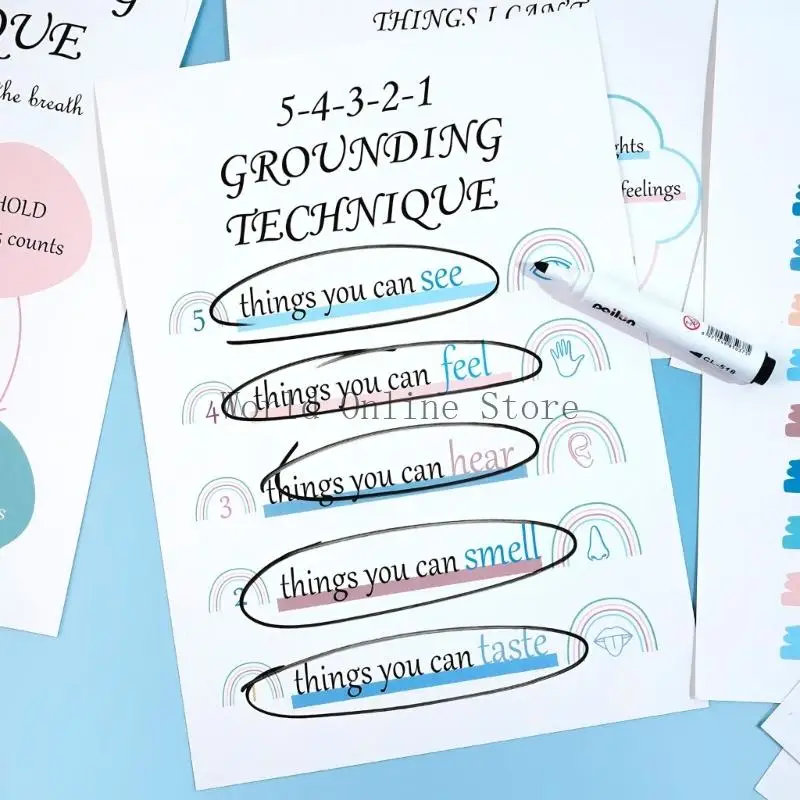 QUE
the breath
HOLD
5 counts
THINGS I CAN'T
5-4-3-2-1
GROUNDING
TECHNIQUE
5 things you can see
4 things you can feel
World Online Store
3 things you can hear
2 things you can smell
things you can taste
ghts
feelings
poilun
CL-518